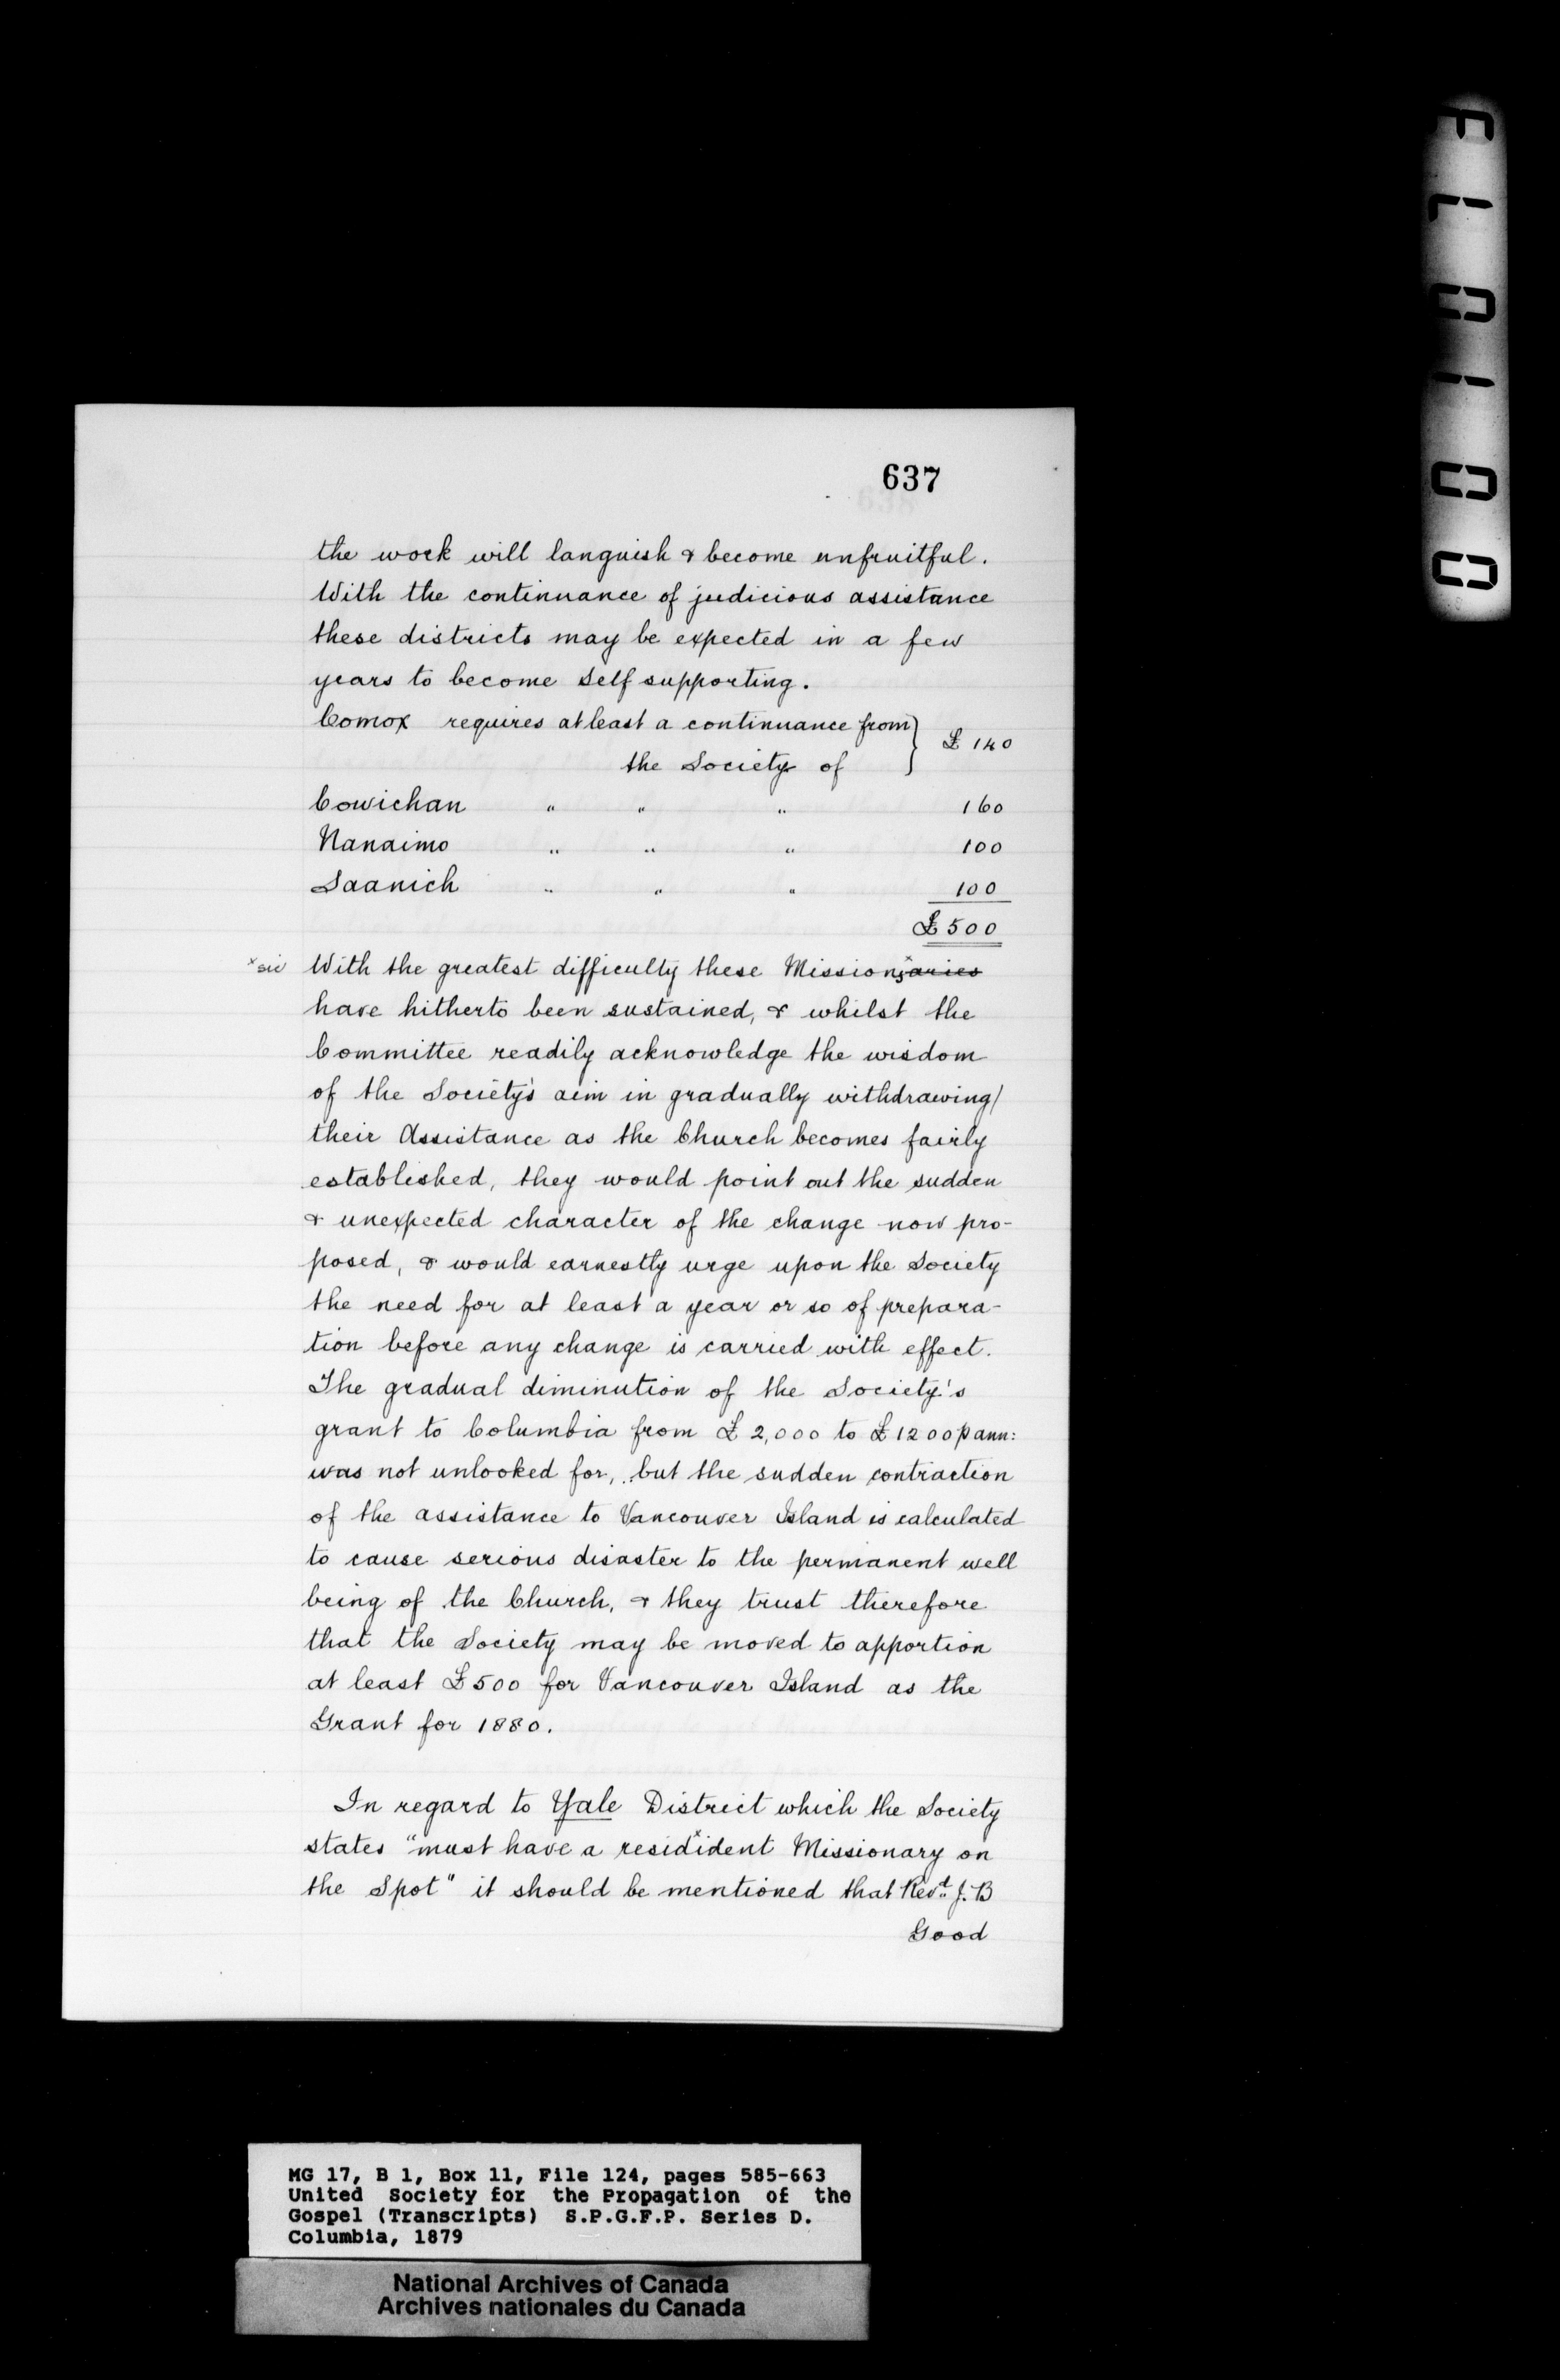 637
the work will languish & become unfruitful.
With the continuance of judicious assistance
these districts may be expected in a few
years to become self supporting.
Comox requires at least a continuance from } £ 140
the Society of
Cowichan " " " 160
Nanaimo " " " 100
Saanich " " " 100
£500
×sic With the greatest difficulty these Missions×aries
have hitherto been sustained, & whilst the
Committee readily acknowledge the wisdom
of the Society's aim in gradually withdrawing/
their Assistance as the Church becomes fairly
established, they would point out the sudden
& unexpected character of the change now pro-
posed, & would earnestly urge upon the Society
the need for at least a year or so of prepara-
tion before any change is carried with effect.
The gradual diminution of the Society's
grant to Columbia from £ 2,000 to £ 1200 p ann:
was not unlooked for, but the sudden contraction
of the assistance to Vancouver Island is calculated
to cause serious disaster to the permanent well
being of the Church, & they trust therefore
that the Society may be moved to apportion
at least £500 for Vancouver Island as the
Grant for 1880.
In regard to Yale District which the Society
states "must have a resid×ident Missionary on
the Spot" it should be mentioned that Revd. J. B
Good
MG 17, B 1, Box 11, File 124, pages 585-663
United Society for the Propagation of the
Gospel (Transcripts) S.P.G.F.P. Series D.
Columbia, 1879
National Archives of Canada
Archives nationales du Canada